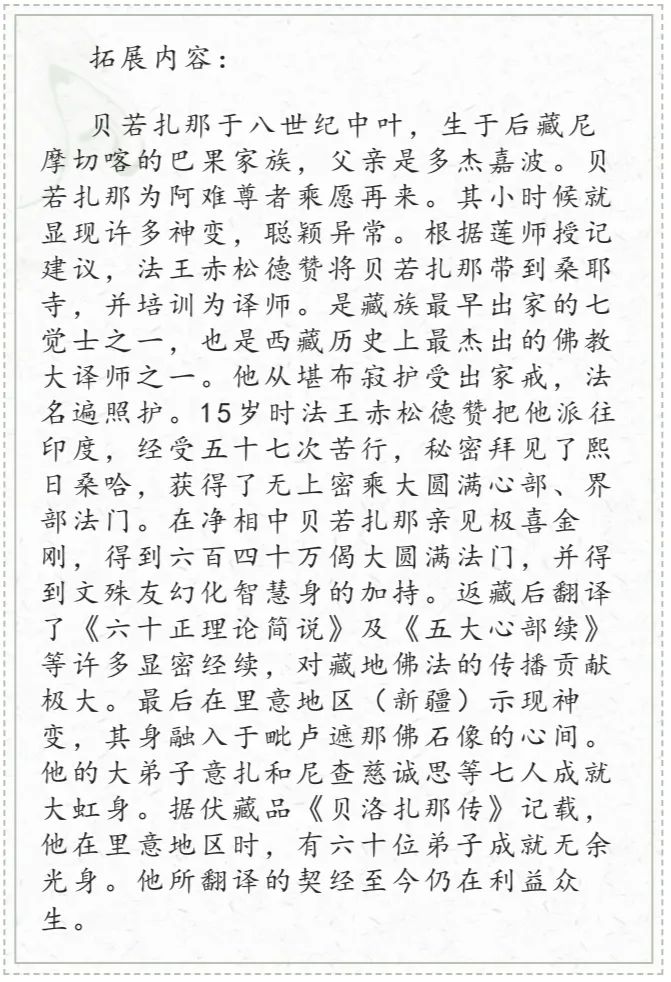 拓展内容：
贝若扎那于八世纪中叶，生于后藏尼
摩切喀的巴果家族，父亲是多杰嘉波。贝
若扎那为阿难尊者乘愿再来。其小时候就
显现许多神变，聪颖异常。根据莲师授记
建议，法王赤松德赞将贝若扎那带到桑耶
寺，并培训为译师。是藏族最早出家的七
觉士之一，也是西藏历史上最杰出的佛教
大译师之一。他从堪布寂护受出家戒，法
名遍照护。15岁时法王赤松德赞把他派往
印度，经受五十七次苦行，秘密拜见了熙
日桑哈，获得了无上密乘大圆满心部、界
部法门。在净相中贝若扎那亲见极喜金
刚，得到六百四十万偈大圆满法门，并得
到文殊友幻化智慧身的加持。返藏后翻译
了《六十正理论简说》及《五大心部续》
等许多显密经续，对藏地佛法的传播贡献
极大。最后在里意地区（新疆）示现神
变，其身融入于毗卢遮那佛石像的心间。
他的大弟子意扎和尼查慈诚思等七人成就
大虹身。据伏藏品《贝洛扎那传》记载，
他在里意地区时，有六十位弟子成就无余
光身。他所翻译的契经至今仍在利益众
生。